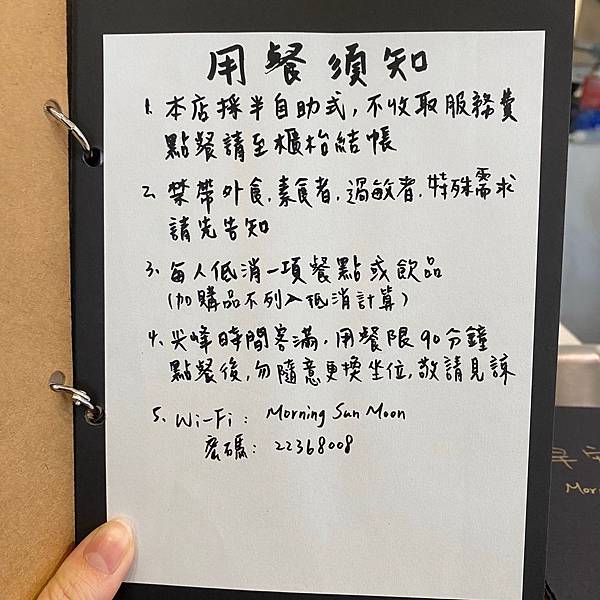 用餐須知
1. 本店採半自助式，不收取服務費
點餐請至櫃枱結帳
2. 禁帶外食，素食者，過敏者，特殊需求
請先告知
3. 每人低消一項餐點或飲品
(加購品不列入低消計算)
4. 尖峰時間客滿，用餐限90分鐘
點餐後，勿隨意更換坐位，敬請見諒
5. Wi-Fi: Morning Sun Moon
密碼: 22368008
早安
Mor